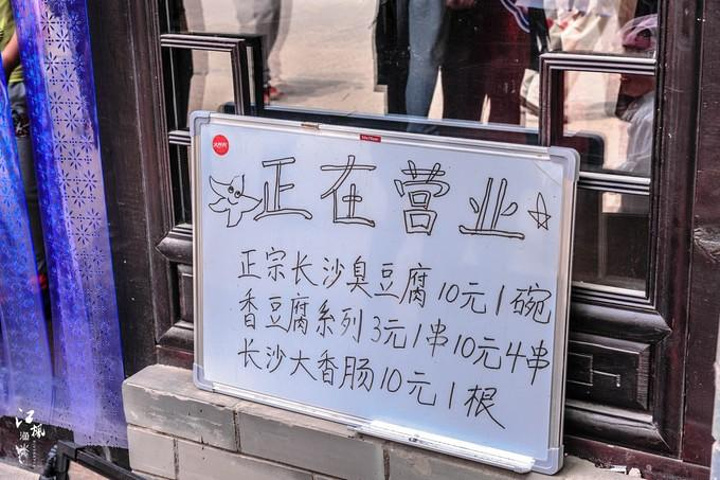 正在营业
正宗长沙臭豆腐10元1碗
香豆腐系列3元1串10元4串
长沙大香肠10元1根